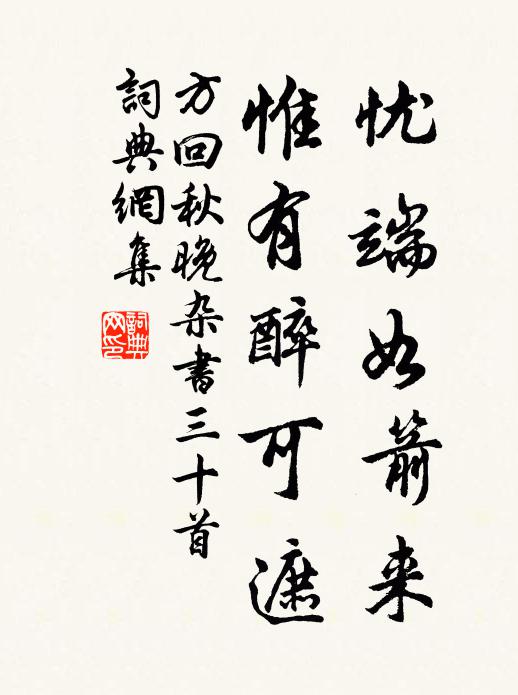 忧端如箭来
惟有醉可遮
方回秋晚杂书三十首
詞典網集
詞典网印